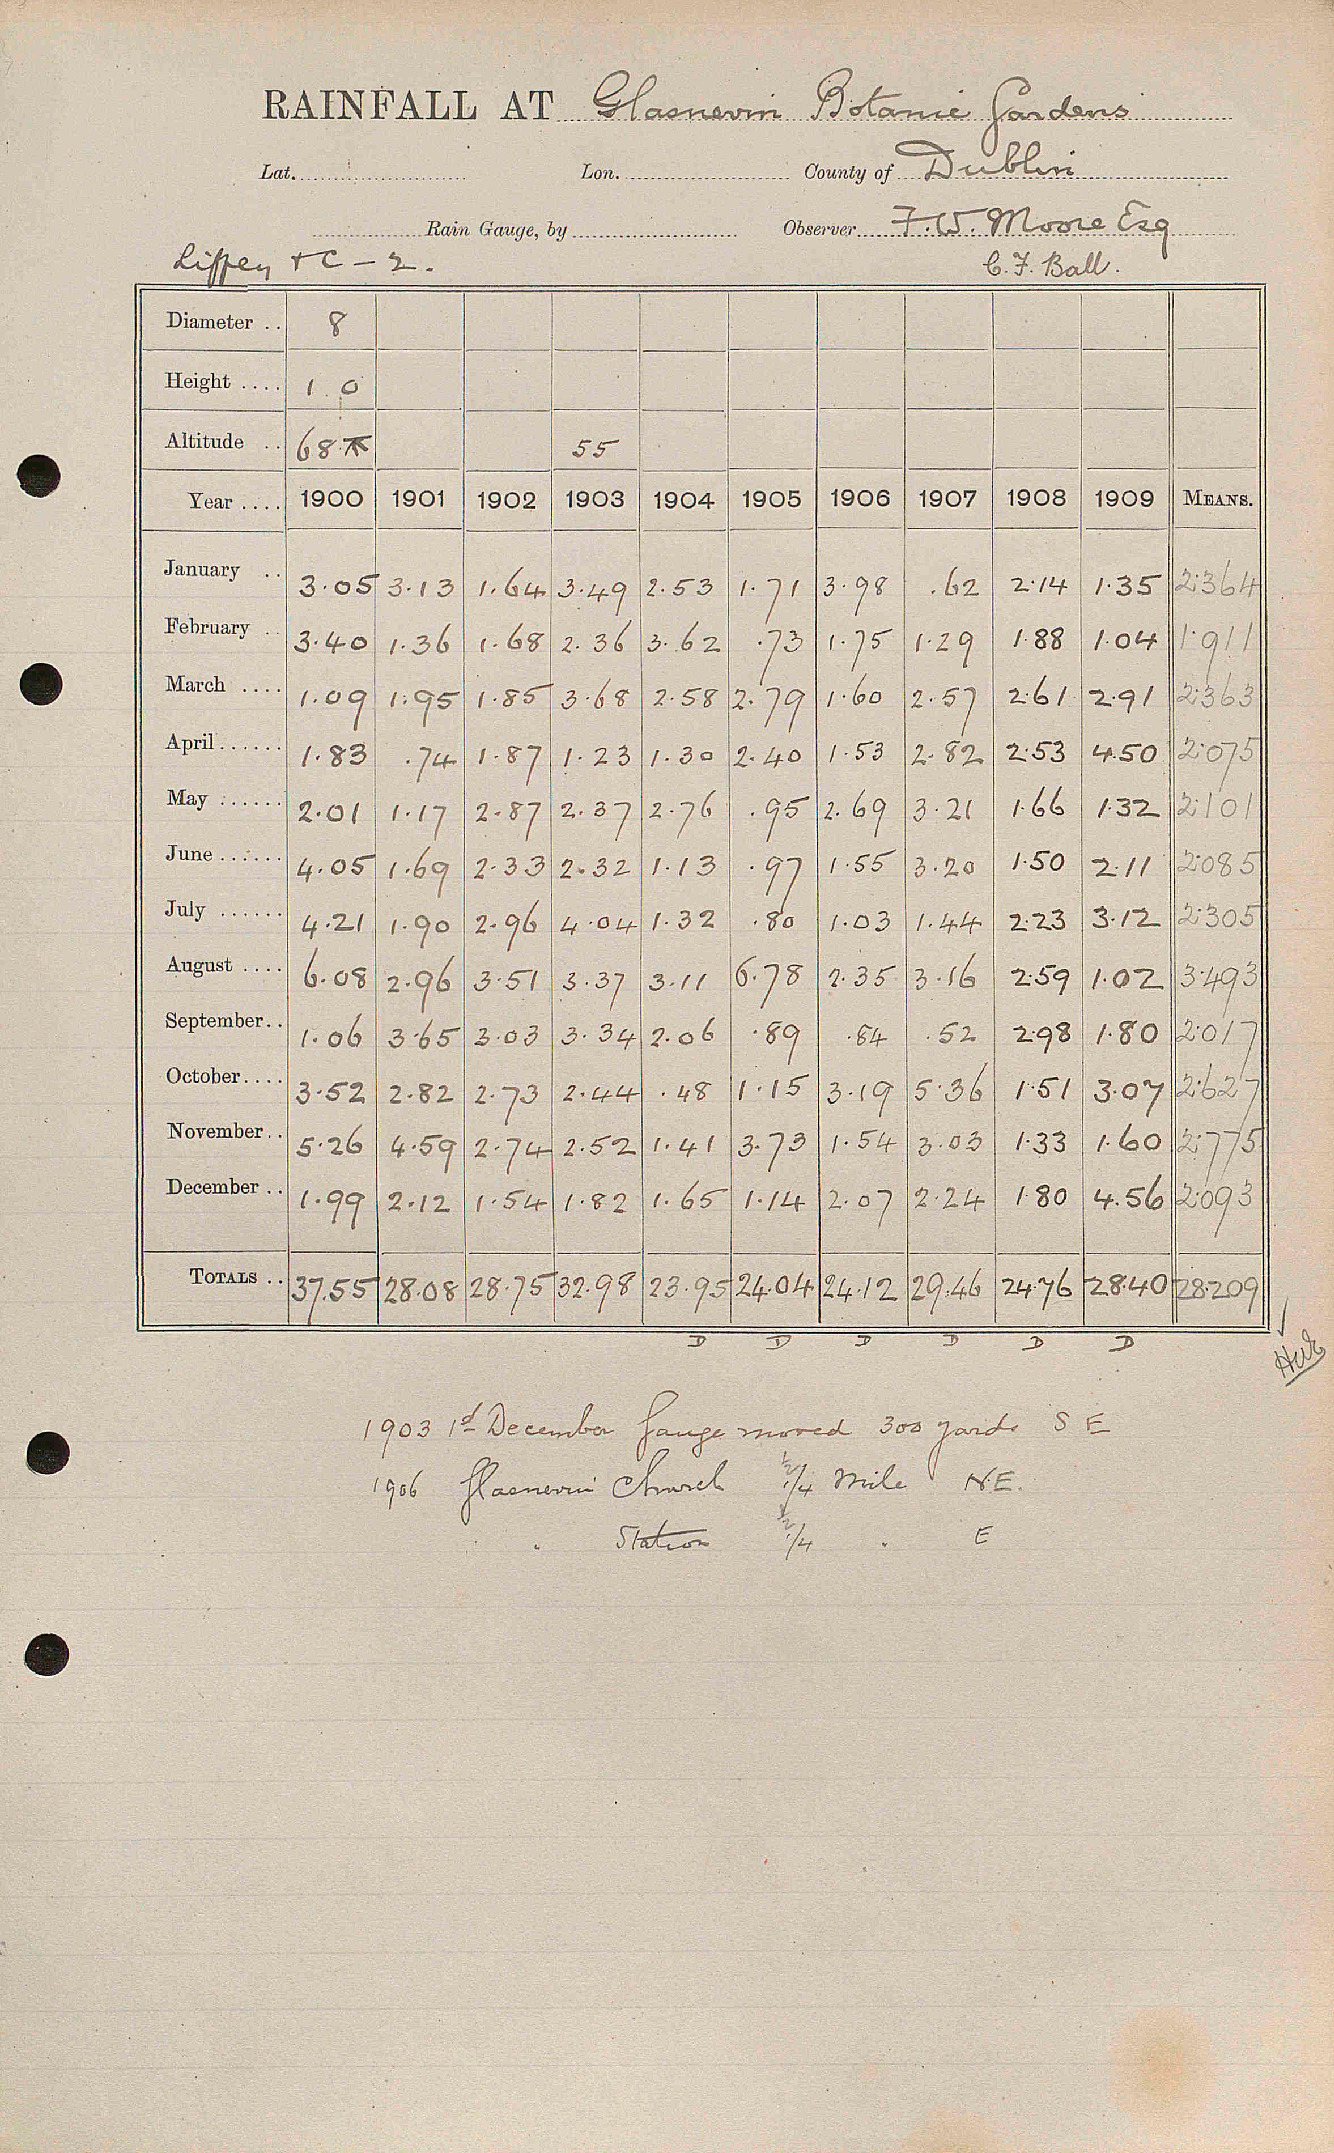 RAINFALL AT Glasnevin Botanic Gardens
Lat. Lon. County of Dublin
Rain Gauge, by Observer F. W. Moore Esq
Liffey + C - 2. C. F. Ball.
Diameter .. 8
Height .... 1 0
Altitude .. 68 55
Year .... 1900 1901 1902 1903 1904 1905 1906 1907 1908 1909 MEANS.
January .. 3.05 3.13 1.64 3.49 2.53 1.71 3.98 .62 2.14 1.35 2.364
February .. 3.40 1.36 1.68 2.36 3.62 .73 1.75 1.29 1.88 1.04 1.911
March .... 1.09 1.95 1.85 3.68 2.58 2.79 1.60 2.57 2.61 2.91 2.363
April ...... 1.83 .74 1.87 1.23 1.30 2.40 1.53 2.82 2.53 4.50 2.075
May ...... 2.01 1.17 2.87 2.37 2.76 .95 2.69 3.21 1.66 1.32 2.101
June ...... 4.05 1.69 2.33 2.32 1.13 .97 1.55 3.20 1.50 2.11 2.085
July ...... 4.21 1.90 2.96 4.04 1.32 .80 1.03 1.44 2.23 3.12 2.305
August .... 6.08 2.96 3.51 3.37 3.11 6.78 2.35 3.16 2.59 1.02 3.493
September.. 1.06 3.65 3.03 3.34 2.06 .89 .84 .52 2.98 1.80 2.017
October.... 3.52 2.82 2.73 2.44 .48 1.15 3.19 5.36 1.51 3.07 2.627
November.. 5.26 4.59 2.74 2.52 1.41 3.73 1.54 3.03 1.33 1.60 2.775
December .. 1.99 2.12 1.54 1.82 1.65 1.14 2.07 2.24 1.80 4.56 2.093
TOTALS .. 37.55 28.08 28.75 32.98 23.95 24.04 24.12 29.46 24.76 28.40 28.209
D D D D D D
1903 1st December Gauge moved 300 yards S E
1906 Glasnevin Church 1/4 Mile N.E.
" Station 1/4 " E